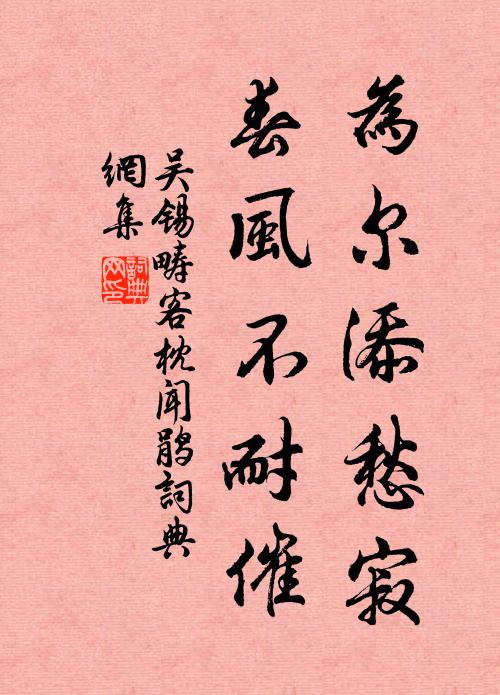 為尔添愁寂
春風不耐催
吴锡疇客枕闻鹃詞典
網集
詞典
网印